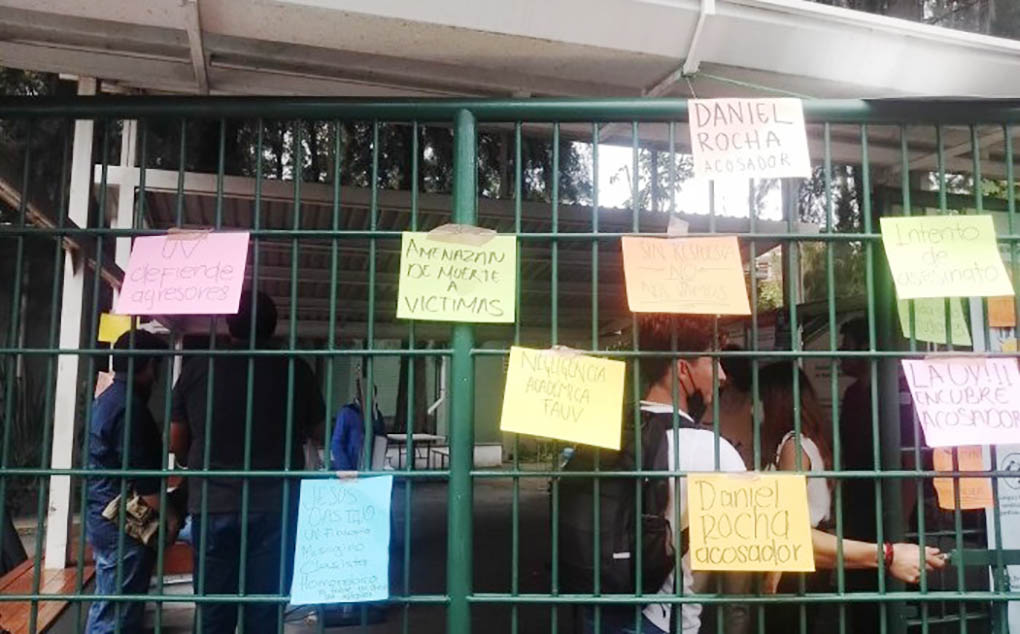 DANIEL
ROCHA
ACOSADOR
UV
defiende
agresores
AMENAZAN
DE MUERTE
A
VICTIMAS
SIN RESPUESTA
NO
NOS VAMOS
Intento
de
asesinato
NEGLIGENCIA
ACADEMICA
FAUV
LA UV!!!
ENCUBRE
ACOSADOR
JESUS
CASTILLO
Misogino
Clasista
Homofobico
Daniel
ROCHA
acosador